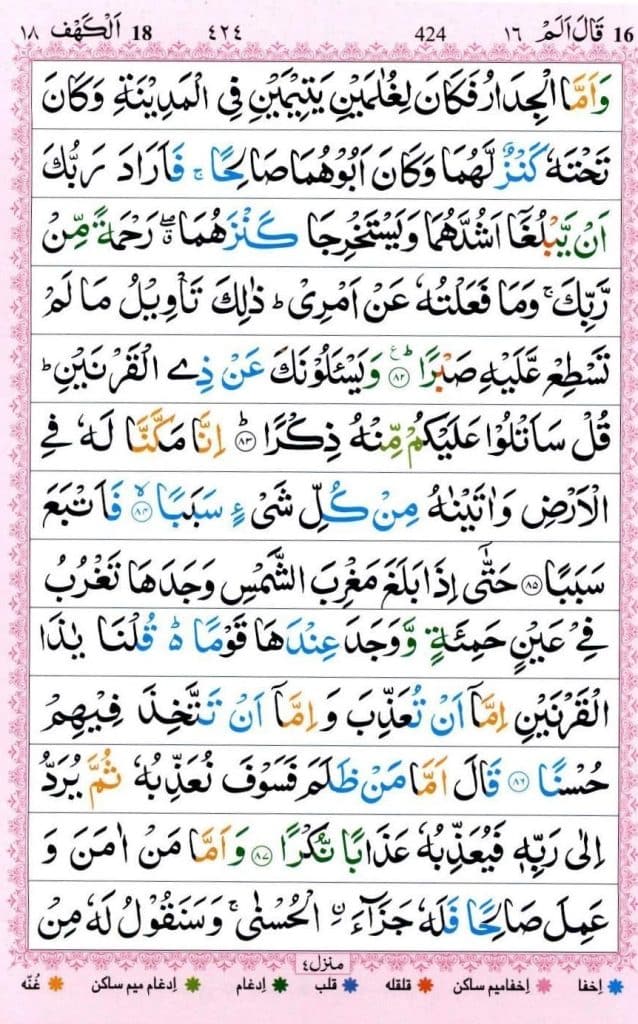 16 قَالَ اَلَمْ ١٦ 424 ٤٢٤ 18 اَلْكَهْف ١٨
وَاَمَّا الْجِدَارُ فَكَانَ لِغُلٰمَيْنِ يَتِيْمَيْنِ فِي الْمَدِيْنَةِ وَكَانَ
تَحْتَهٗ كَنْزٌ لَّهُمَا وَكَانَ اَبُوْهُمَا صَالِحًا ۚ فَاَرَادَ رَبُّكَ
اَنْ يَّبْلُغَاۤ اَشُدَّهُمَا وَيَسْتَخْرِجَا كَنْزَهُمَا ۖۗ رَحْمَةً مِّنْ
رَّبِّكَ ۚ وَمَا فَعَلْتُهٗ عَنْ اَمْرِيْ ؕ ذٰلِكَ تَاْوِيْلُ مَا لَمْ
تَسْطِعْ عَّلَيْهِ صَبْرًا ؕ ﴿٨٢﴾ ع وَيَسْـَٔلُوْنَكَ عَنْ ذِي الْقَرْنَيْنِ ؕ
قُلْ سَاَتْلُوْا عَلَيْكُمْ مِّنْهُ ذِكْرًا ؕ ﴿٨٣﴾ اِنَّا مَكَّنَّا لَهٗ فِي
الْاَرْضِ وَاٰتَيْنٰهُ مِنْ كُلِّ شَيْءٍ سَبَبًا ۙ ﴿٨٤﴾ فَاَتْبَعَ
سَبَبًا ﴿٨٥﴾ حَتّٰۤى اِذَا بَلَغَ مَغْرِبَ الشَّمْسِ وَجَدَهَا تَغْرُبُ
فِيْ عَيْنٍ حَمِئَةٍ وَّوَجَدَ عِنْدَهَا قَوْمًا ؕ۬ قُلْنَا يٰذَا
الْقَرْنَيْنِ اِمَّاۤ اَنْ تُعَذِّبَ وَاِمَّاۤ اَنْ تَتَّخِذَ فِيْهِمْ
حُسْنًا ﴿٨٦﴾ قَالَ اَمَّا مَنْ ظَلَمَ فَسَوْفَ نُعَذِّبُهٗ ثُمَّ يُرَدُّ
اِلٰى رَبِّهٖ فَيُعَذِّبُهٗ عَذَابًا نُّكْرًا ﴿٨٧﴾ وَاَمَّا مَنْ اٰمَنَ وَ
عَمِلَ صَالِحًا فَلَهٗ جَزَآءَ ۨ الْحُسْنٰى ۚ وَسَنَقُوْلُ لَهٗ مِنْ
منزل ٤
اِخفا اِخفامیم ساکن قلقله قلب اِدغام اِدغام میم ساکن غُنّه